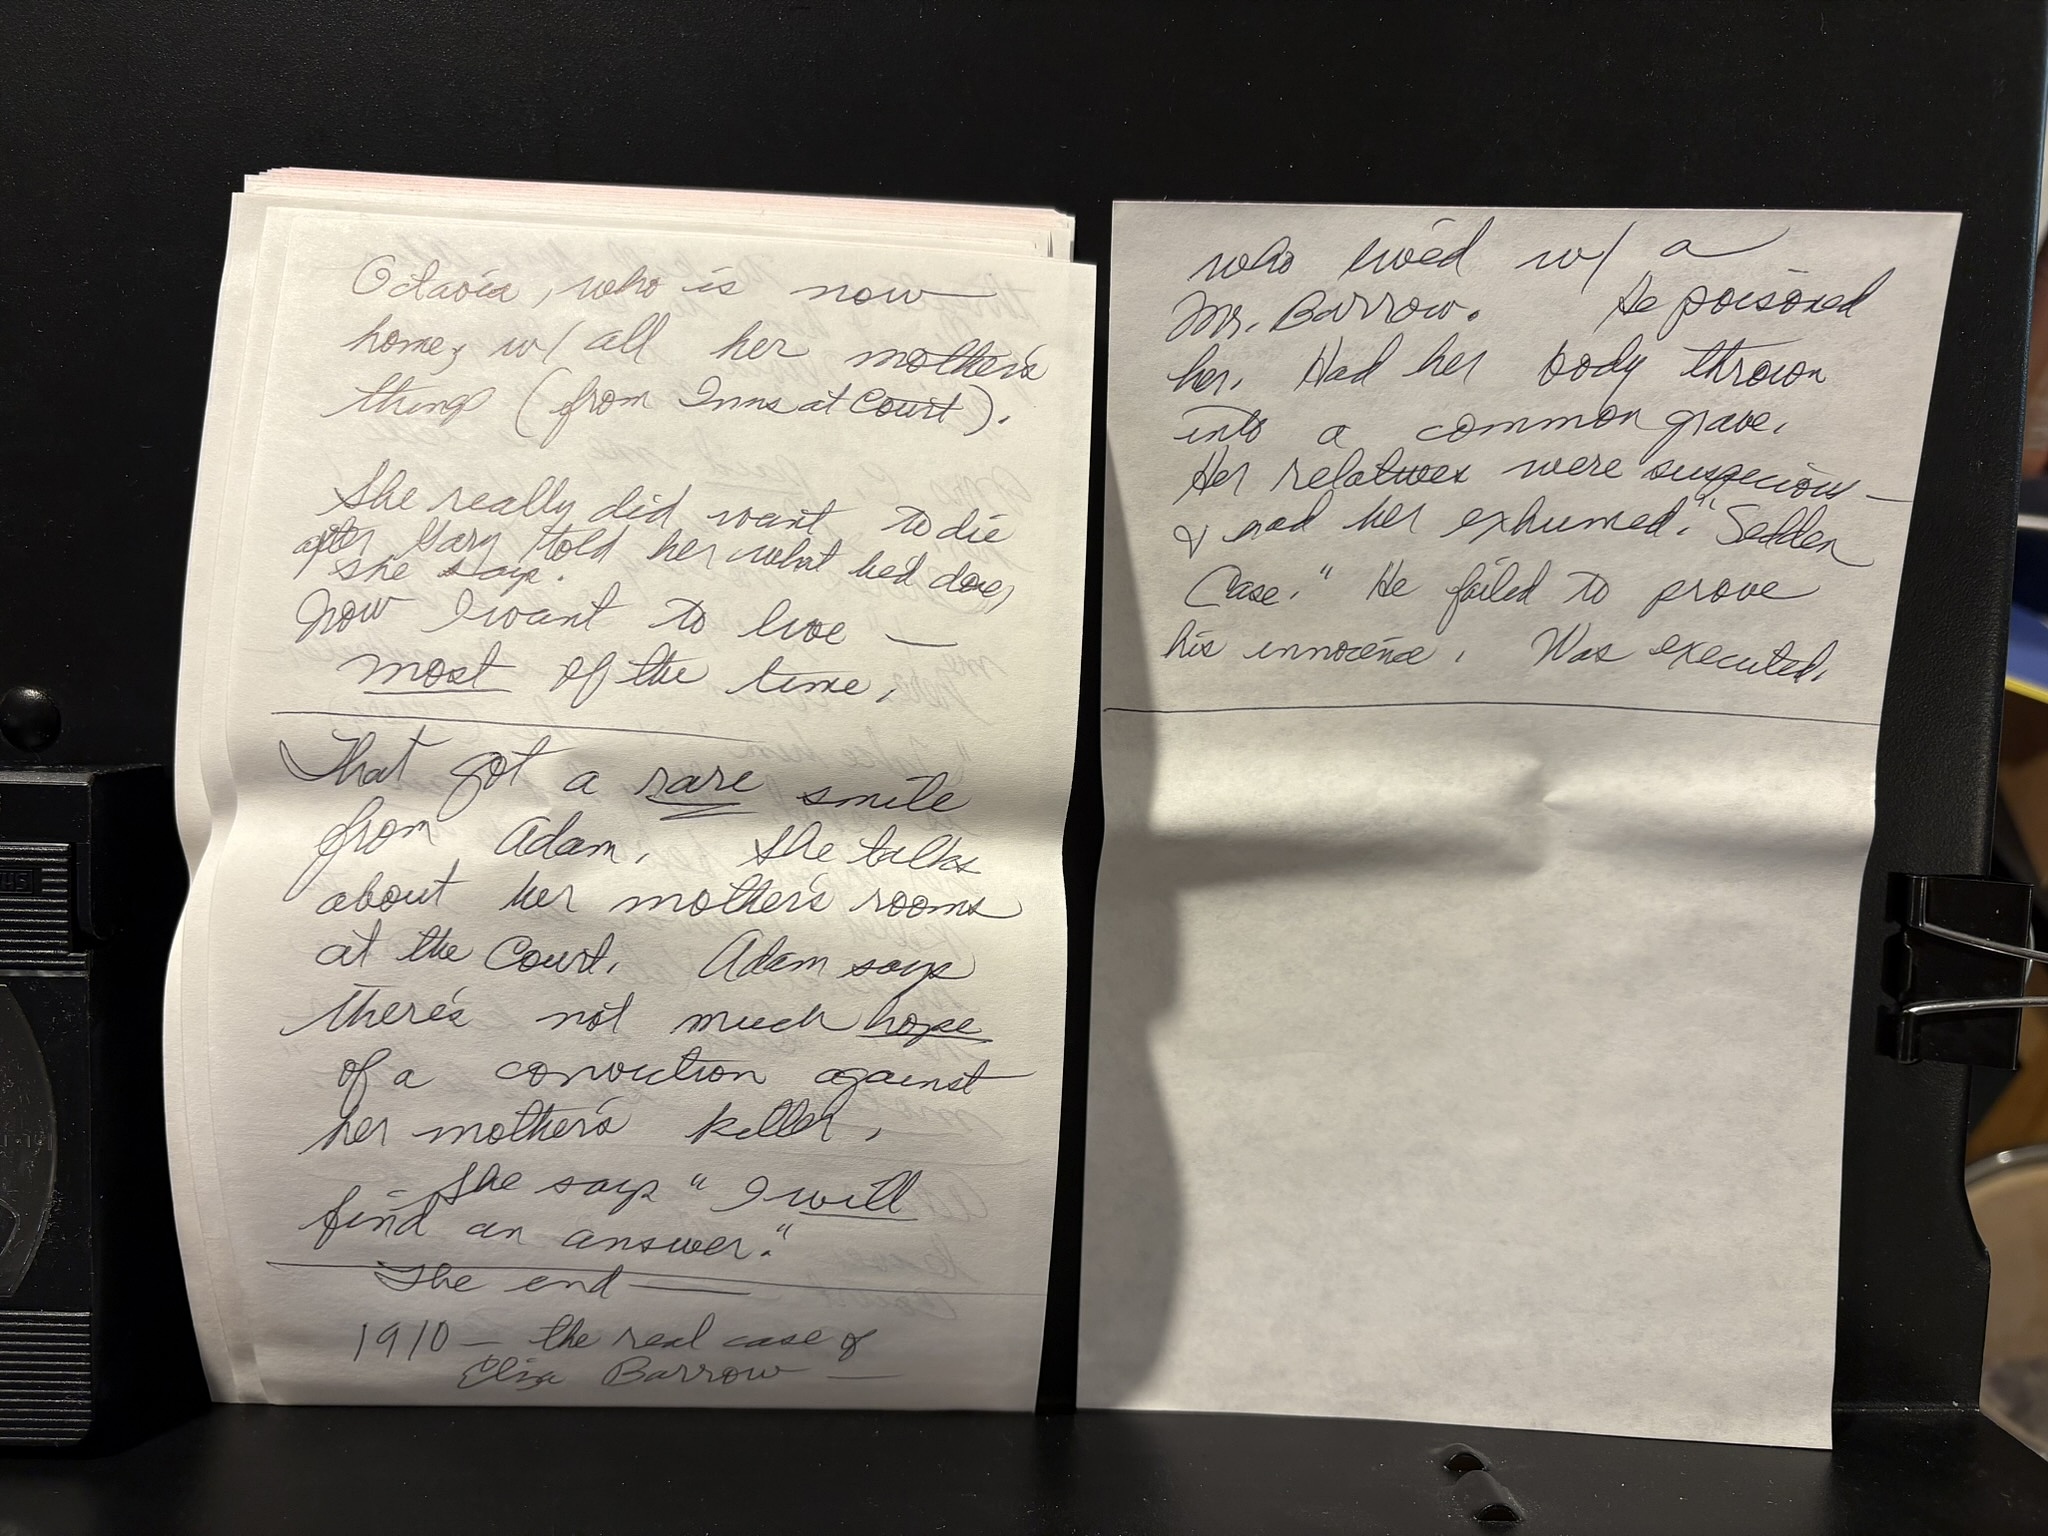 Octavia, who is now
home, w/ all her mother's
things (from Inns at Court).
She really did want to die
after Gary told her what he'd done,
she says.
Now I want to live —
most of the time.
That got a rare smile
from Adam. She talks
about her mother's rooms
at the Court. Adam says
there's not much hope
of a conviction against
her mother's killer.
She says "I will
find an answer."
The end —
1910 — the real case of
Eliza Barrow —
who lived w/ a
Mr. Barrow. He poisoned
her. Had her body thrown
into a common grave.
Her relatives were suspecious —
& had her exhumed. "Sedden
Case." He failed to prove
his innocence. Was executed.
VHS